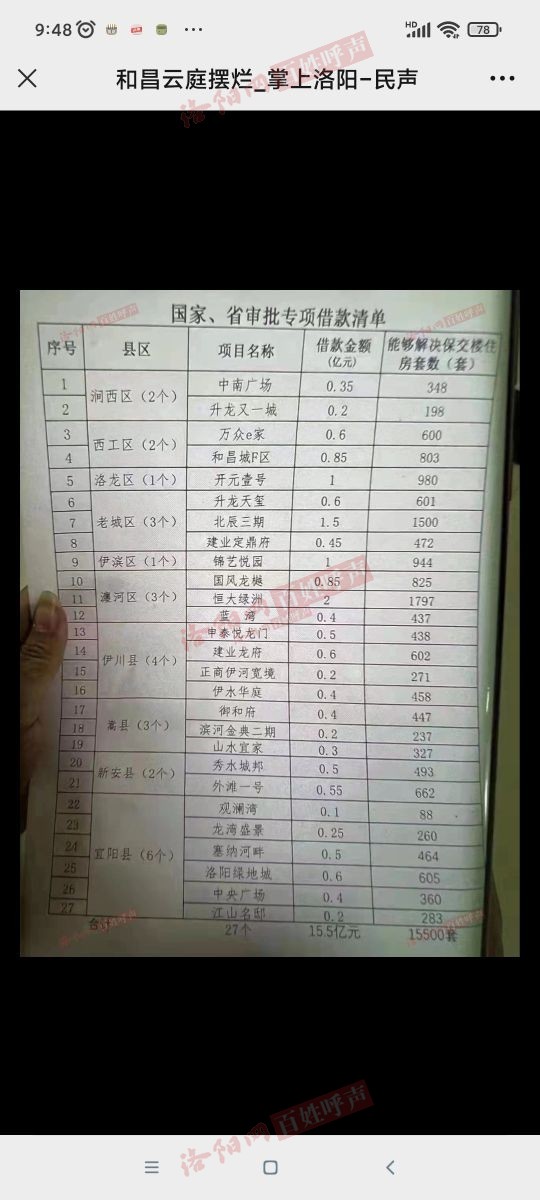 9:48
HD
78
和昌云庭摆烂_掌上洛阳-民声
洛阳网百姓呼声
国家、省审批专项借款清单
序号 县区 项目名称 借款金额(亿元) 能够解决保交楼住房套数（套）
1 涧西区（2个） 中南广场 0.35 348
2 升龙又一城 0.2 198
3 西工区（2个） 万众e家 0.6 600
4 和昌城F区 0.85 803
5 洛龙区（1个） 开元壹号 1 980
6 老城区（3个） 升龙天玺 0.6 601
7 北辰三期 1.5 1500
8 建业定鼎府 0.45 472
9 伊滨区（1个） 锦艺悦园 1 944
10 瀍河区（3个） 国风龙樾 0.85 825
11 恒大绿洲 2 1797
12 蓝 湾 0.4 437
13 伊川县（4个） 申泰悦龙门 0.5 438
14 建业龙府 0.6 602
15 正商伊河宽境 0.2 271
16 伊水华庭 0.4 458
17 嵩县（3个） 御和府 0.4 447
18 滨河金典二期 0.2 237
19 山水宜家 0.3 327
20 新安县（2个） 秀水城邦 0.5 493
21 外滩一号 0.55 662
22 宜阳县（6个） 观澜湾 0.1 88
23 龙湾盛景 0.25 260
24 塞纳河畔 0.5 464
25 洛阳绿地城 0.6 605
26 中央广场 0.4 360
27 江山名邸 0.2 283
合计 27个 15.5亿元 15500套
洛阳网百姓呼声
洛阳网百姓呼声